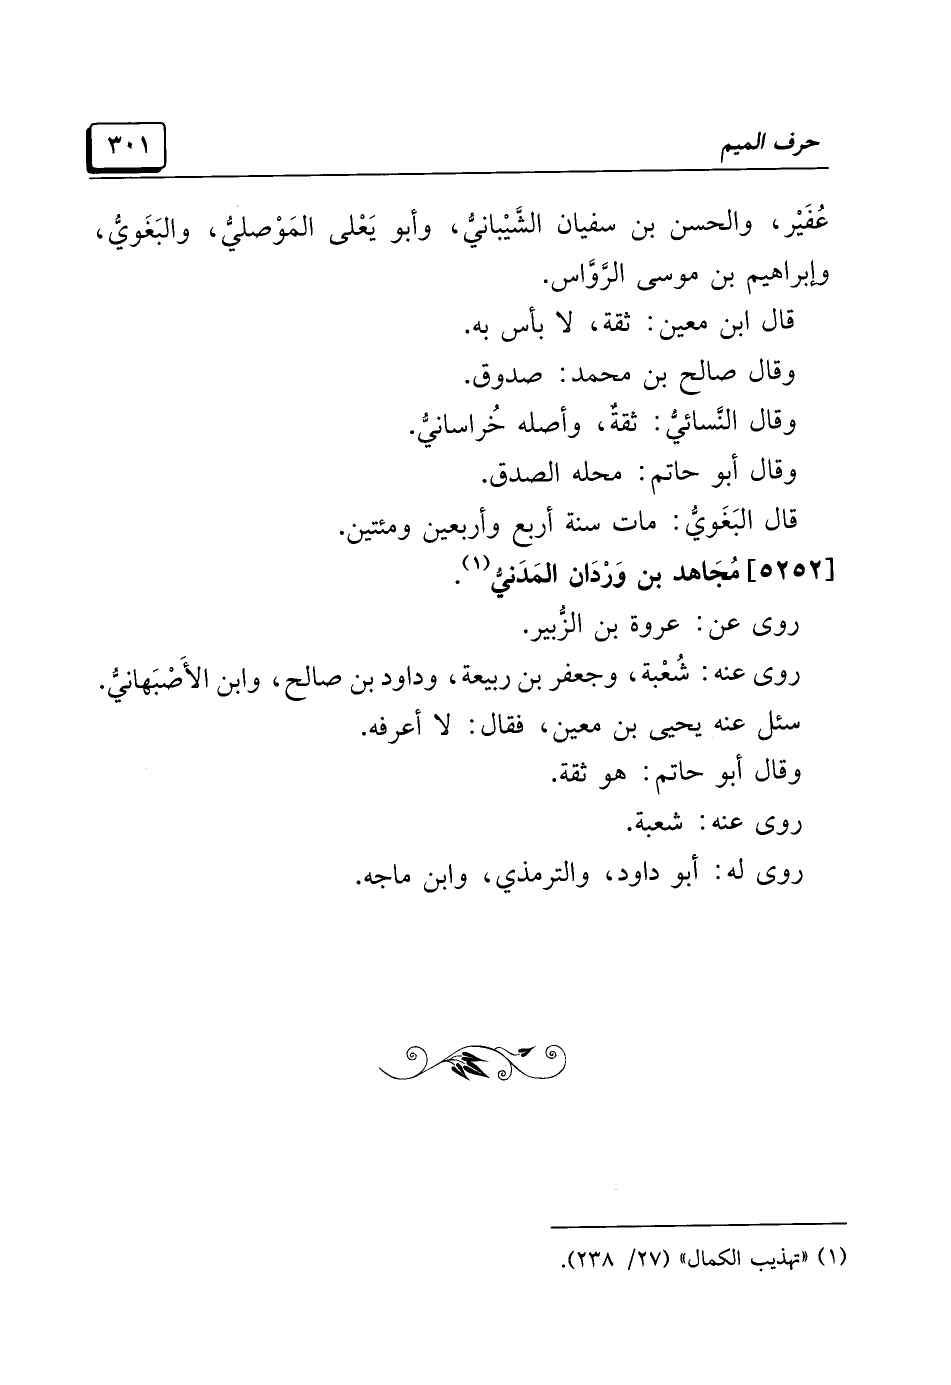 حرف الميم
٣٠١
عُفَيْر، والحسن بن سفيان الشَّيْبانيُّ، وأبو يَعْلى المَوْصليُّ، والبَغَويُّ،
وإبراهيم بن موسى الرَّوَّاس.
قال ابن معين: ثقة، لا بأس به.
وقال صالح بن محمد: صدوق.
وقال النَّسائيُّ: ثقةٌ، وأصله خُراسانيُّ.
وقال أبو حاتم: محله الصدق.
قال البَغَويُّ: مات سنة أربع وأربعين ومئتين.
[٥٢٥٢] مُجَاهد بن وَرْدَان المَدَنيُّ(١).
روى عن: عروة بن الزُّبير.
روى عنه: شُعْبة، وجعفر بن ربيعة، وداود بن صالح، وابن الأَصْبَهانيُّ.
سئل عنه يحيى بن معين، فقال: لا أعرفه.
وقال أبو حاتم: هو ثقة.
روى عنه: شعبة.
روى له: أبو داود، والترمذي، وابن ماجه.
(١) «تهذيب الكمال» (٢٧/ ٢٣٨).